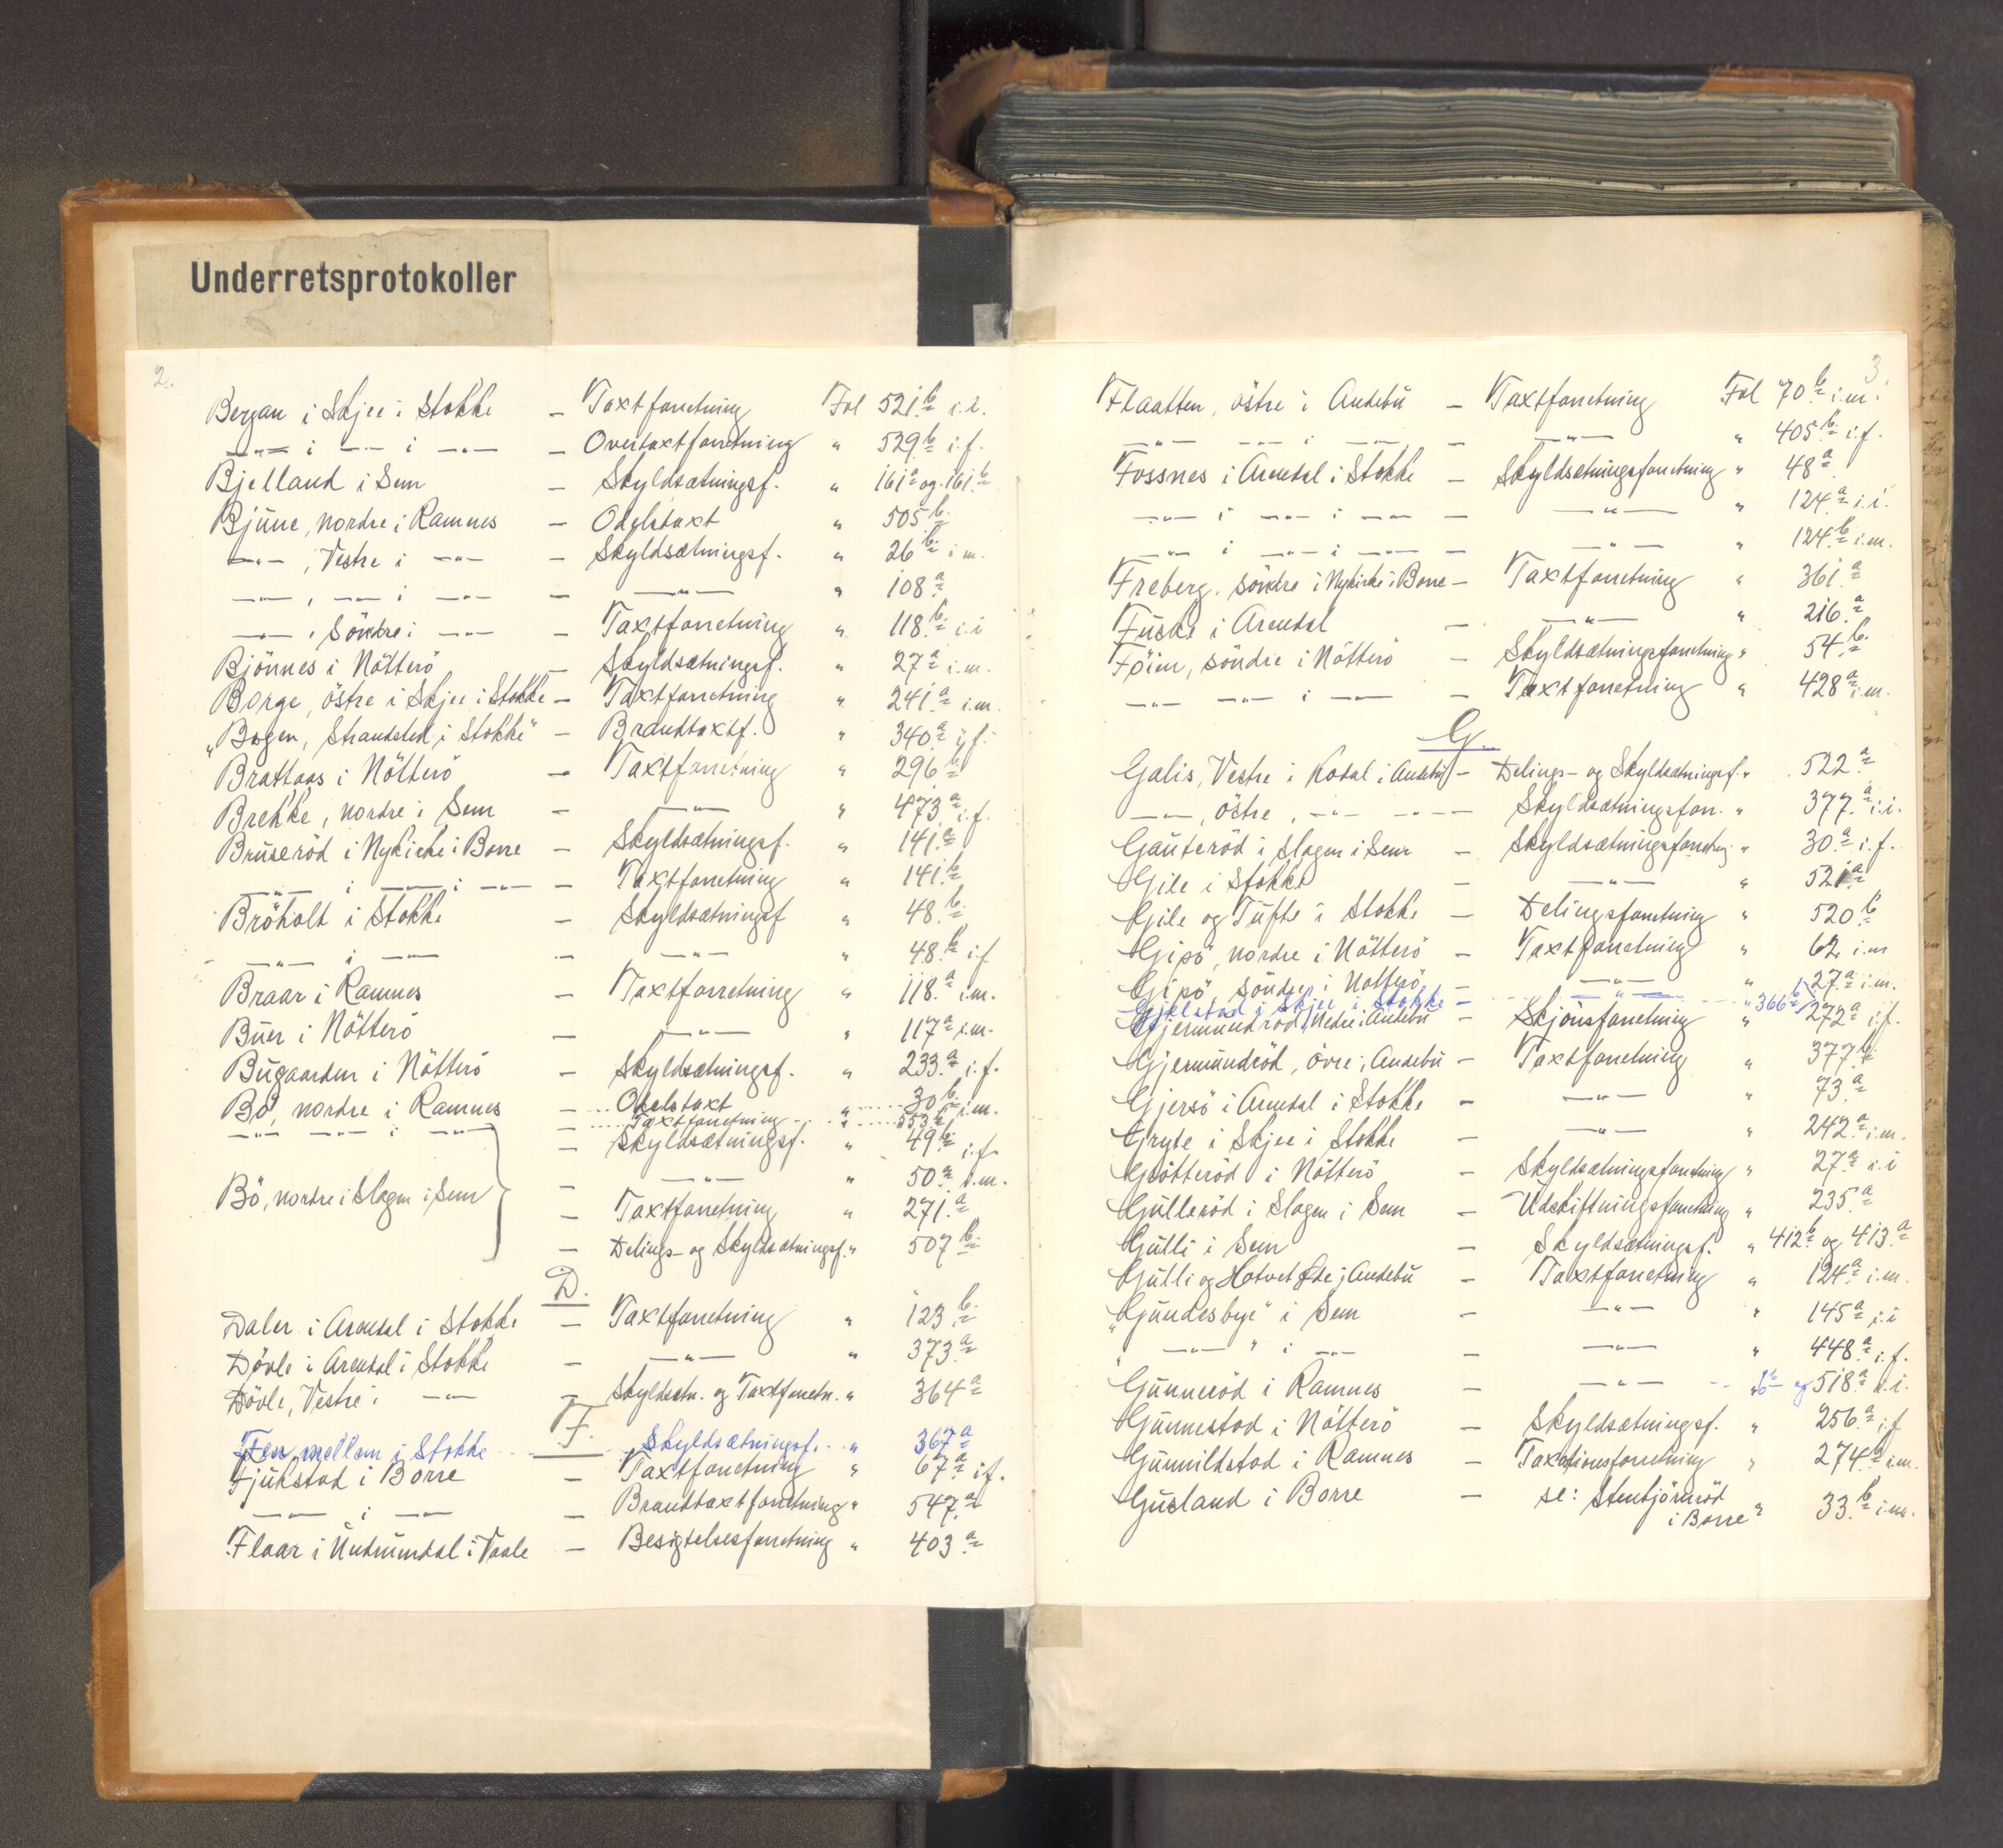 Underretsprotokoller
2.
Bergan i Skjee i Stokke — Taxtforretning Fol 521 b i.i.
—"— i —"— i —"— — Overtaxtforretning " 529 b i.f.
Bjelland i Sem — Skyldsætningsf. " 161 a og 161 b
Bjune, nordre i Ramnes — Odelstaxt " 505 b
—"—, Vestre i —"— — Skyldsætningsf. " 26 b i m.
—"—, —"— i —"— — —"— " 108 a
—"—, Söndre i —"— — Taxtforretning " 118 b i.i
Bjönnes i Nötterö — Skyldsætningsf. " 27 a i.m.
Borge, östre i Skjee i Stokke — Taxtforretning " 241 a i.m.
"Bogen, Strandsted i Stokke" — Brandtaxtf. " 340 a i.f.
Brattaas i Nötterö — Taxtforretning " 296 b
Brekke, nordre i Sem — —"— " 473 a i.f.
Bruseröd i Nykirke i Borre — Skyldsætningsf. " 141 a
—"— i —"— i —"— — Taxtforretning " 141 b
Bröholt i Stokke — Skyldsætningsf " 48 b
—"— i —"— — —"— " 48 b i f
Braar i Ramnes — Taxtforretning " 118 a i.m.
Buer i Nötterö — —"— " 117 a i.m.
Bugaarden i Nötterö — Skyldsætningsf. " 233 a i.f.
Bö, nordre i Ramnes — Odelstaxt " 30 b i.m.
—"— —"— i —"— — Taxtforretning " 553 b
— Skyldsætningsf. " 49 b i.f.
Bö, nordre i Slagen i Sem — —"— " 50 a i.m.
— Taxtforretning " 271 a
— Delings- og Skyldsætningsf. " 507 b
D.
Dalen i Arendal i Stokke — Taxtforretning " 123 b
Dövle i Arendal i Stokke — —"— " 373 a
Dövle, Vestre i —"— — Skyldsetn. og Taxtforretn. " 364 a
F.
Fen, mellem i Stokke Skyldsætningsf. " 367 a
Fjukstad i Borre — Taxtforretning " 67 a i f.
—"— i —"— — Brandtaxtforretning " 547 a
Flaar i Undrumdal i Vaale — Besigtelsesforretning " 403 a
3.
Flaatten, östre i Andebu — Taxtforretning Fol 70 b i.m.
—"— —"— i —"— — —"— " 405 b i.f.
Fossnes i Arendal i Stokke — Skyldsætningsforretning " 48 a
—"— i —"— i —"— — —"— " 124 a i.i.
—"— i —"— i —"— — —"— " 124 b i.m.
Freberg, söndre i Nykirke i Borre — Taxtforretning " 361 a
Fuske i Arendal — —"— " 216 a
Föien, söndre i Nötterö — Skyldsætningsforretning " 54 b
—"— i —"— — Taxtforretning " 428 a i.m.
G.
Galis, Vestre i Kodal i Andebu — Delings- og Skyldsætningsf. " 522 a
—"—, östre, —"— —"— — Skyldsætningsforr. " 377 a i.i.
Gauteröd i Slagen i Sem — Skyldsætningsforretning " 30 a i.f.
Gile i Stokke — —"— " 521 a
Gile og Tufte i Stokke — Delingsforretning " 520 b
Gipö, nordre i Nötterö — Taxtforretning " 62 i.m
Gipö, söndre i Nötterö — —"— " 27 a i.m.
Gjelstad i Skjee i Stokke — —"— " 366 b
Gjermundröd, Nedre i Andebu — Skjönsforretning " 272 a i f.
Gjermundröd, övre i Andebu — Taxtforretning " 377 b
Gjersö i Arendal i Stokke — —"— " 73 a
Gryte i Skjee i Stokke — —"— " 242 a i.m.
Grötteröd i Nötterö — Skyldsætningsforretning " 27 a i.i
Gulleröd i Slagen i Sem — Udskiftningsforretning " 235 a
Gulli i Sem — Skyldsætningsf. " 412 b og 413 a
Gulli og Hotvet i Andebu — Taxtforretning " 124 a i.m.
"Gundesbye" i Sem — —"— " 145 a i.i
" —"— " i —"— — —"— " 448 a i.f.
Gunneröd i Ramnes — —"— " 6 b og 518 a i.i.
Gunnestad i Nötterö — Skyldsætningsf. " 256 a i f
Gunnildstad i Ramnes — Taxationsforretning " 274 a i.m.
Gusland i Borre — se: Stentjörnröd
i Borre " 33 b i.m.